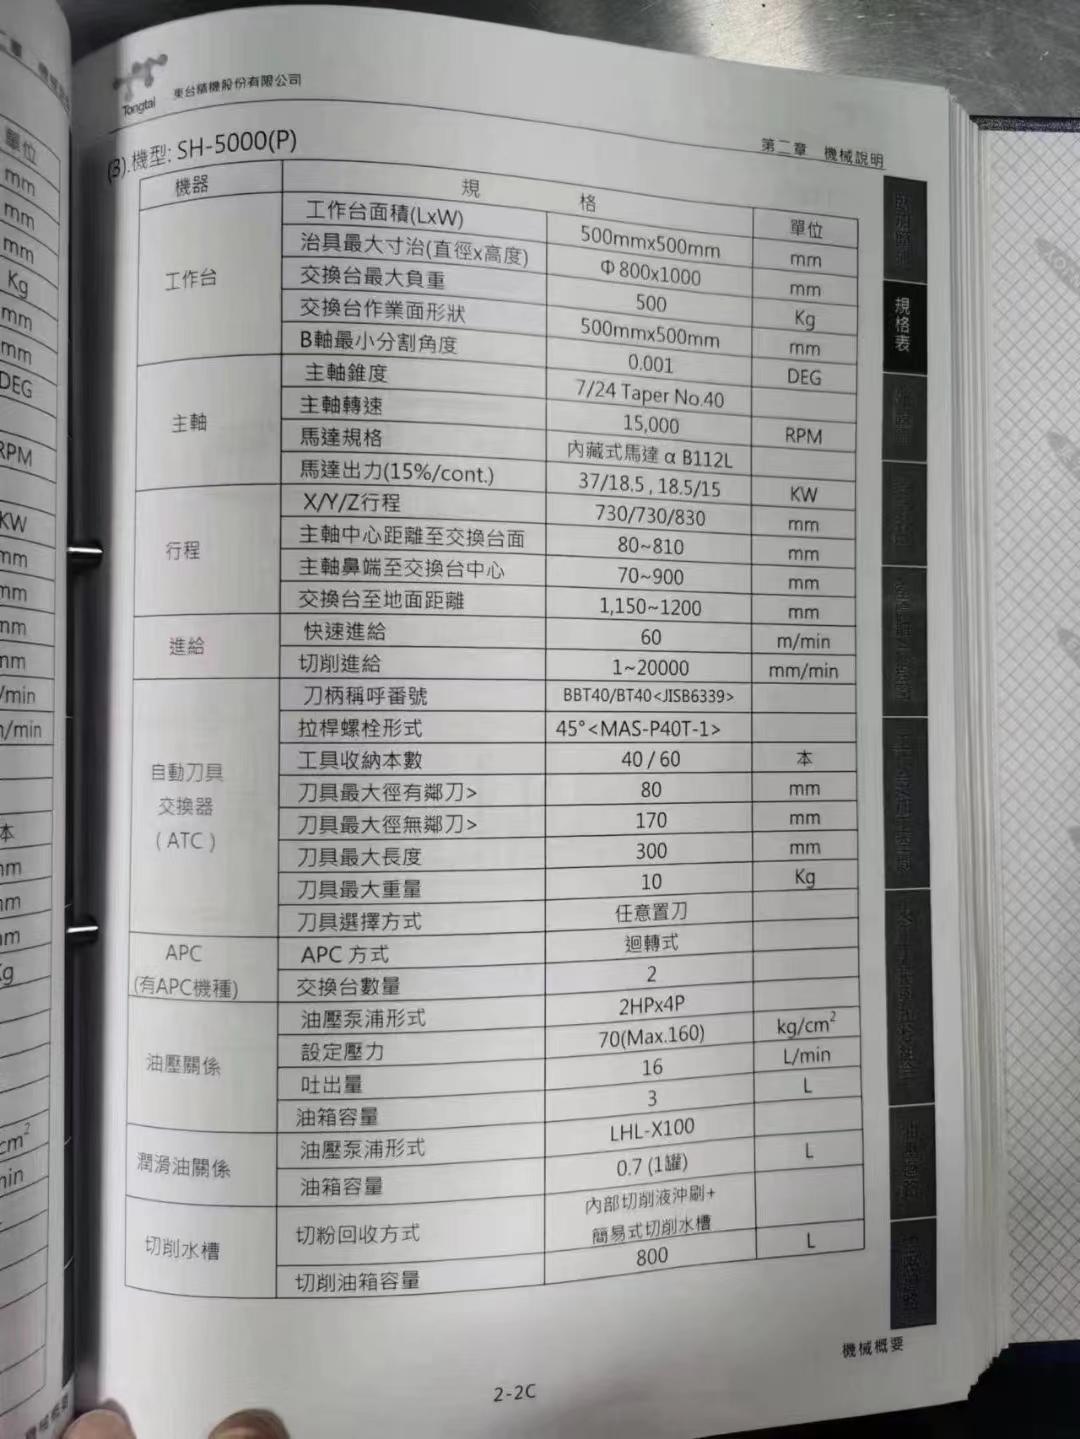 Tongtai 東台精機股份有限公司
第二章 機械說明
(3).機型: SH-5000(P)
機器 規 格 單位
工作台 工作台面積(LxW) 500mmx500mm mm
治具最大寸治(直徑x高度) Φ800x1000 mm
交換台最大負重 500 Kg
交換台作業面形狀 500mmx500mm mm
B軸最小分割角度 0.001 DEG
主軸 主軸錐度 7/24 Taper No.40
主軸轉速 15,000 RPM
馬達規格 內藏式馬達 α B112L
馬達出力(15%/cont.) 37/18.5 , 18.5/15 KW
行程 X/Y/Z行程 730/730/830 mm
主軸中心距離至交換台面 80~810 mm
主軸鼻端至交換台中心 70~900 mm
交換台至地面距離 1,150~1200 mm
進給 快速進給 60 m/min
切削進給 1~20000 mm/min
自動刀具交換器(ATC) 刀柄稱呼番號 BBT40/BT40<JISB6339>
拉桿螺栓形式 45°<MAS-P40T-1>
工具收納本數 40 / 60 本
刀具最大徑有鄰刀> 80 mm
刀具最大徑無鄰刀> 170 mm
刀具最大長度 300 mm
刀具最大重量 10 Kg
刀具選擇方式 任意置刀
APC(有APC機種) APC 方式 迴轉式
交換台數量 2
油壓關係 油壓泵浦形式 2HPx4P
設定壓力 70(Max.160) kg/cm²
吐出量 16 L/min
油箱容量 3 L
潤滑油關係 油壓泵浦形式 LHL-X100
油箱容量 0.7 (1罐) L
切削水槽 切粉回收方式 內部切削液沖刷+
簡易式切削水槽
切削油箱容量 800 L
規格表
機械概要
2-2C
單位
mm
mm
mm
Kg
mm
mm
DEG
RPM
KW
mm
mm
mm
mm
/min
/min
本
mm
mm
mm
Kg
cm²
min